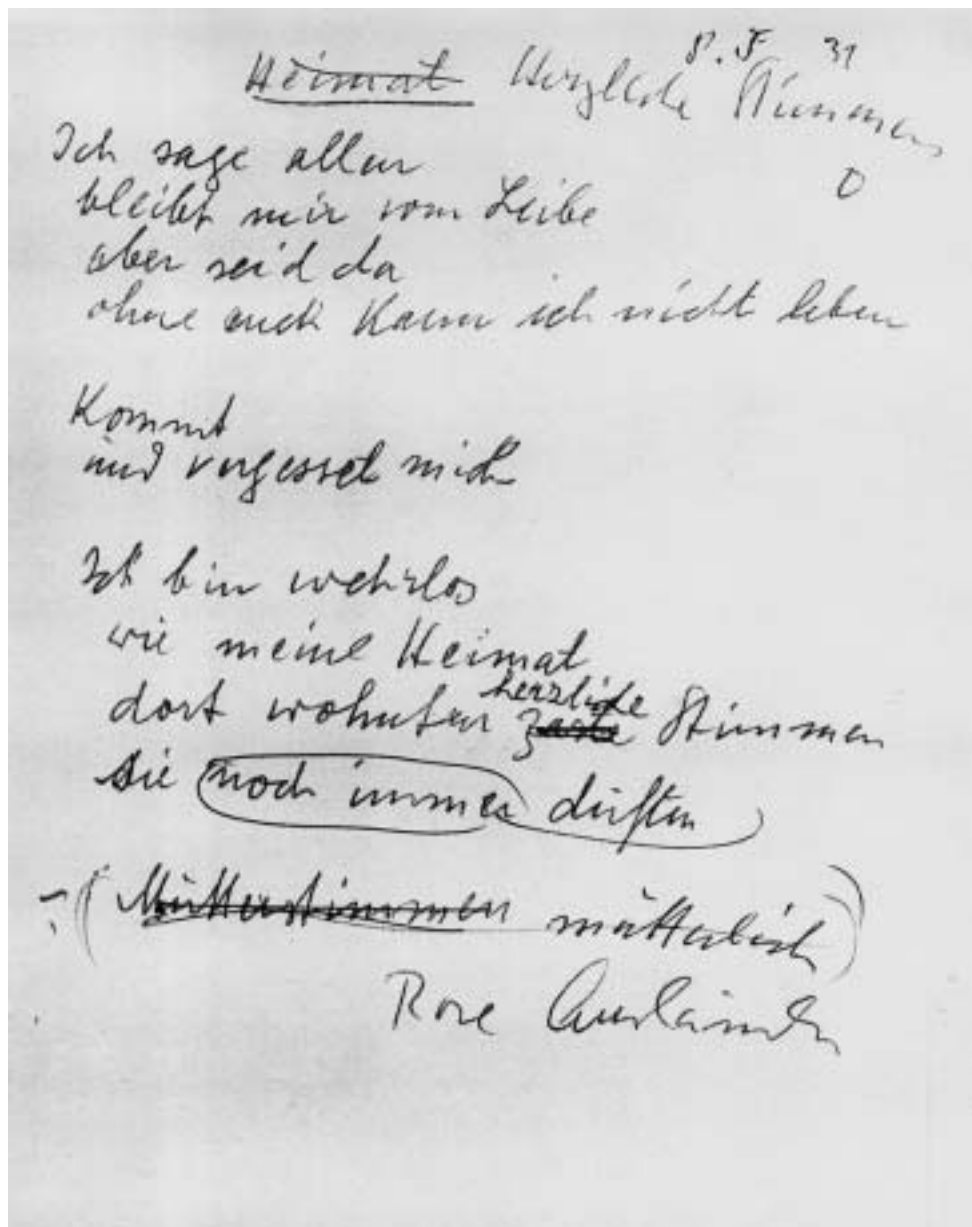 P. F 31
Heimat Herzliche Stimmen
Ich sage allen
bleibt mir vom Leibe
aber seid da
ohne euch kann ich nicht leben
Kommt
und vergesset mich
Ich bin wehrlos
wie meine Heimat
herzliche
dort wohnten zarte Stimmen
sie noch immer duften
(Mutterstimmen mütterlich)
Rose Ausländer